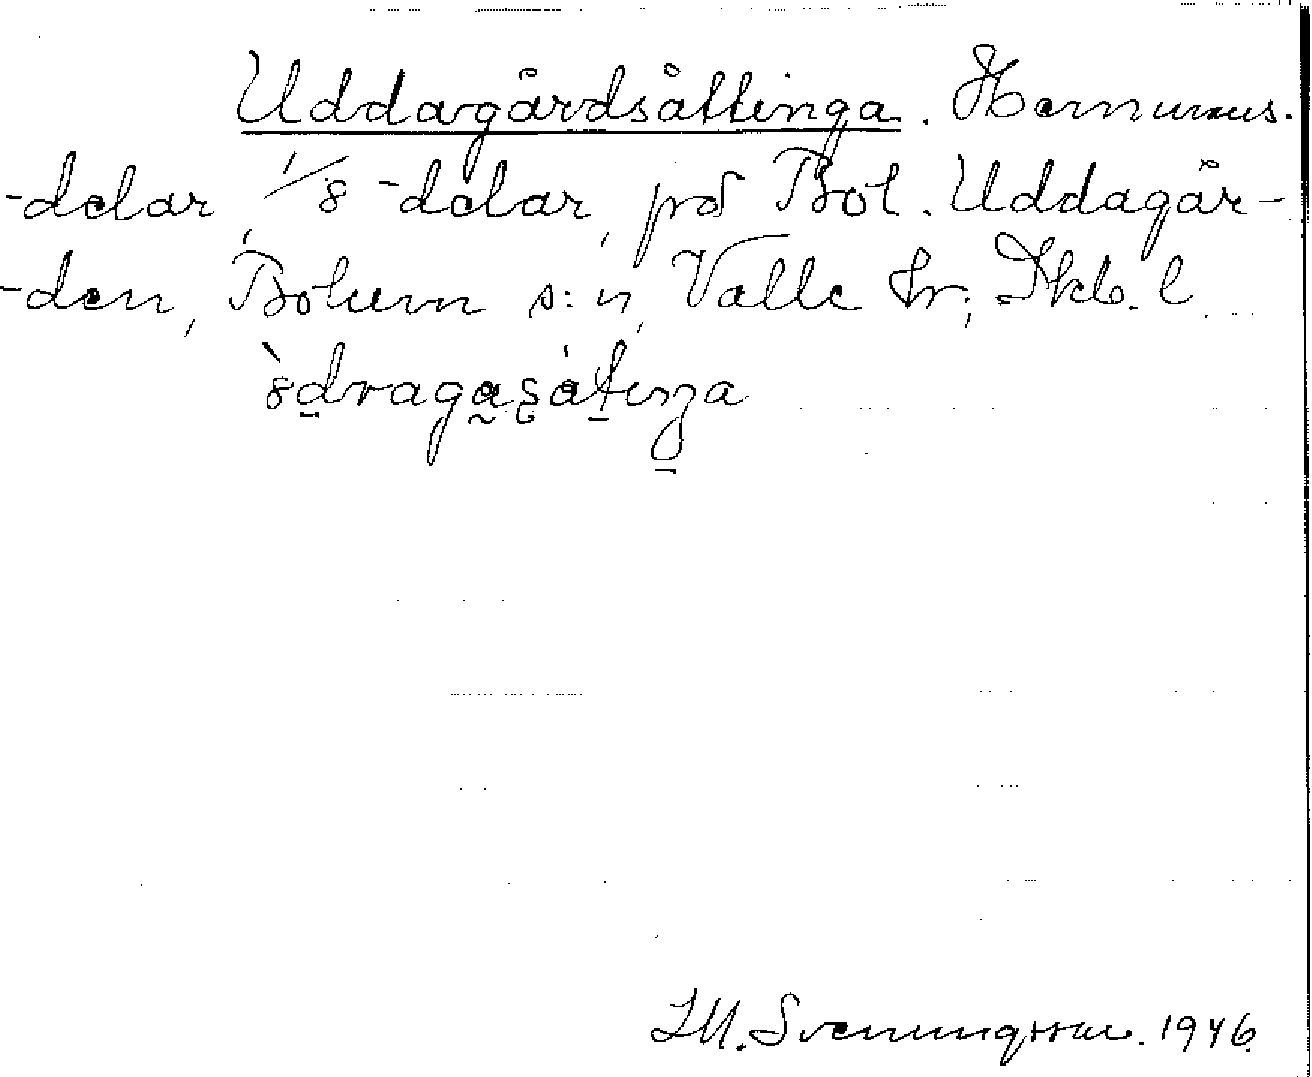 Uddagårdsåttinga. Hemmans-
-delar, 1/8 -delar, på Bol. Uddagår-
-den, Bolum s:n, Valle hr, Skb. l.
J.M. Svenningsson. 1946.